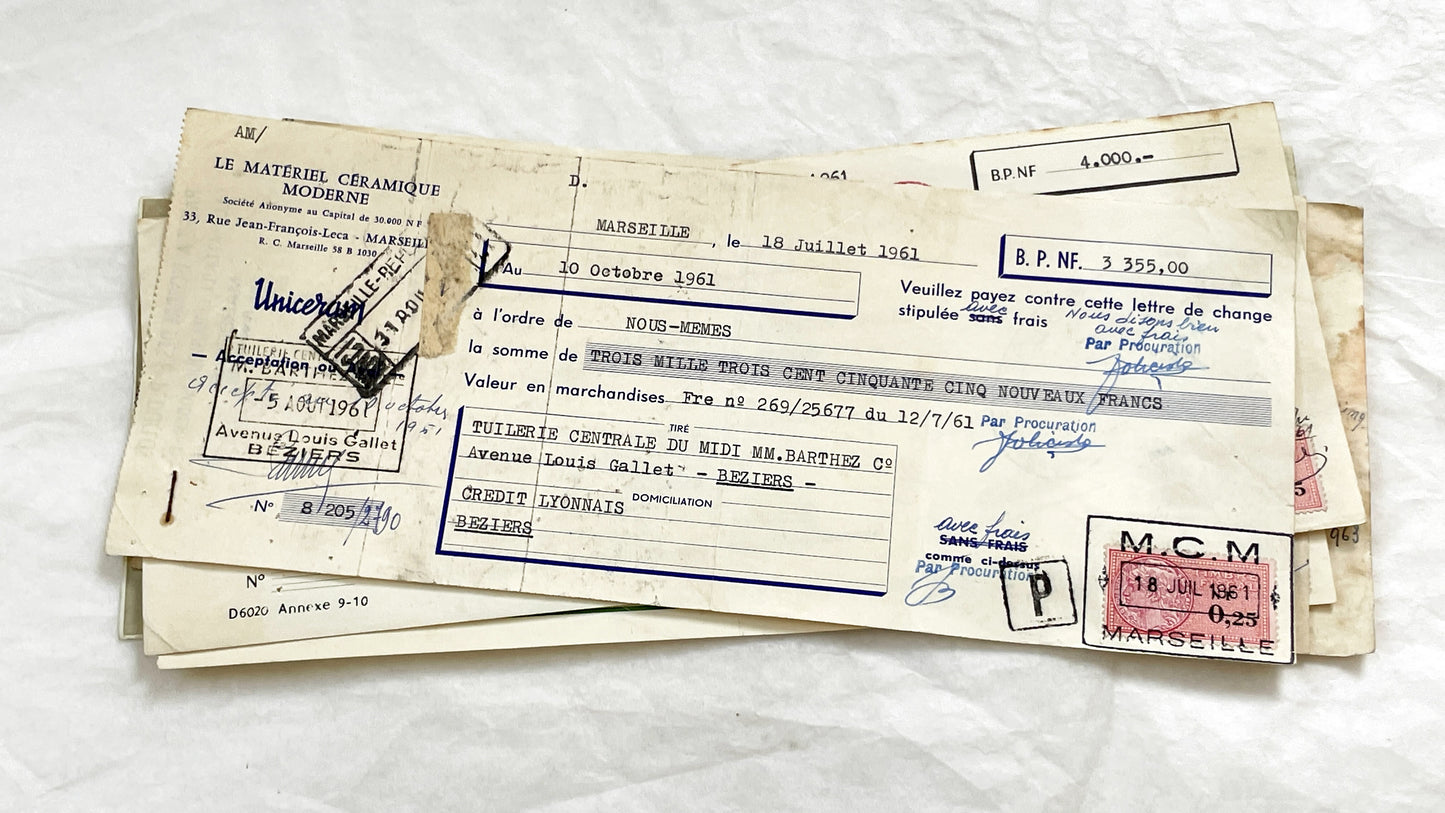 AM/
LE MATÉRIEL CÉRAMIQUE
MODERNE
Société Anonyme au Capital de 30.000 NF
33, Rue Jean-François-Leca - MARSEILL
R. C. Marseille 58 B 1030
Uniceram
MARSEILLE-REP
31 AOU
1961
— Acceptation ou
TUILERIE CEN
M. BARTHE
-5 AOUT 1961
Avenue Louis Gallet
BÉZIERS
octobre
1961
N° 8/205/2790
D.
MARSEILLE, le 18 Juillet 1961
Au 10 Octobre 1961
B. P. NF. 3 355,00
Veuillez payez contre cette lettre de change
stipulée sans frais
avec
Nous disons bien
avec frais
Par Procuration
à l'ordre de NOUS-MEMES
la somme de TROIS MILLE TROIS CENT CINQUANTE CINQ NOUVEAUX FRANCS
Valeur en marchandises Fre nº 269/25677 du 12/7/61
Par Procuration
TIRÉ
TUILERIE CENTRALE DU MIDI MM.BARTHEZ Cº
Avenue Louis Gallet - BEZIERS -
DOMICILIATION
CREDIT LYONNAIS
BEZIERS
avec frais
SANS FRAIS
comme ci-dessus
Par Procuration
P
M.C.M
18 JUIL 1961
0,25
MARSEILLE
1961
B.P.NF 4.000.-
N°
D6020 Annexe 9-10
963
5